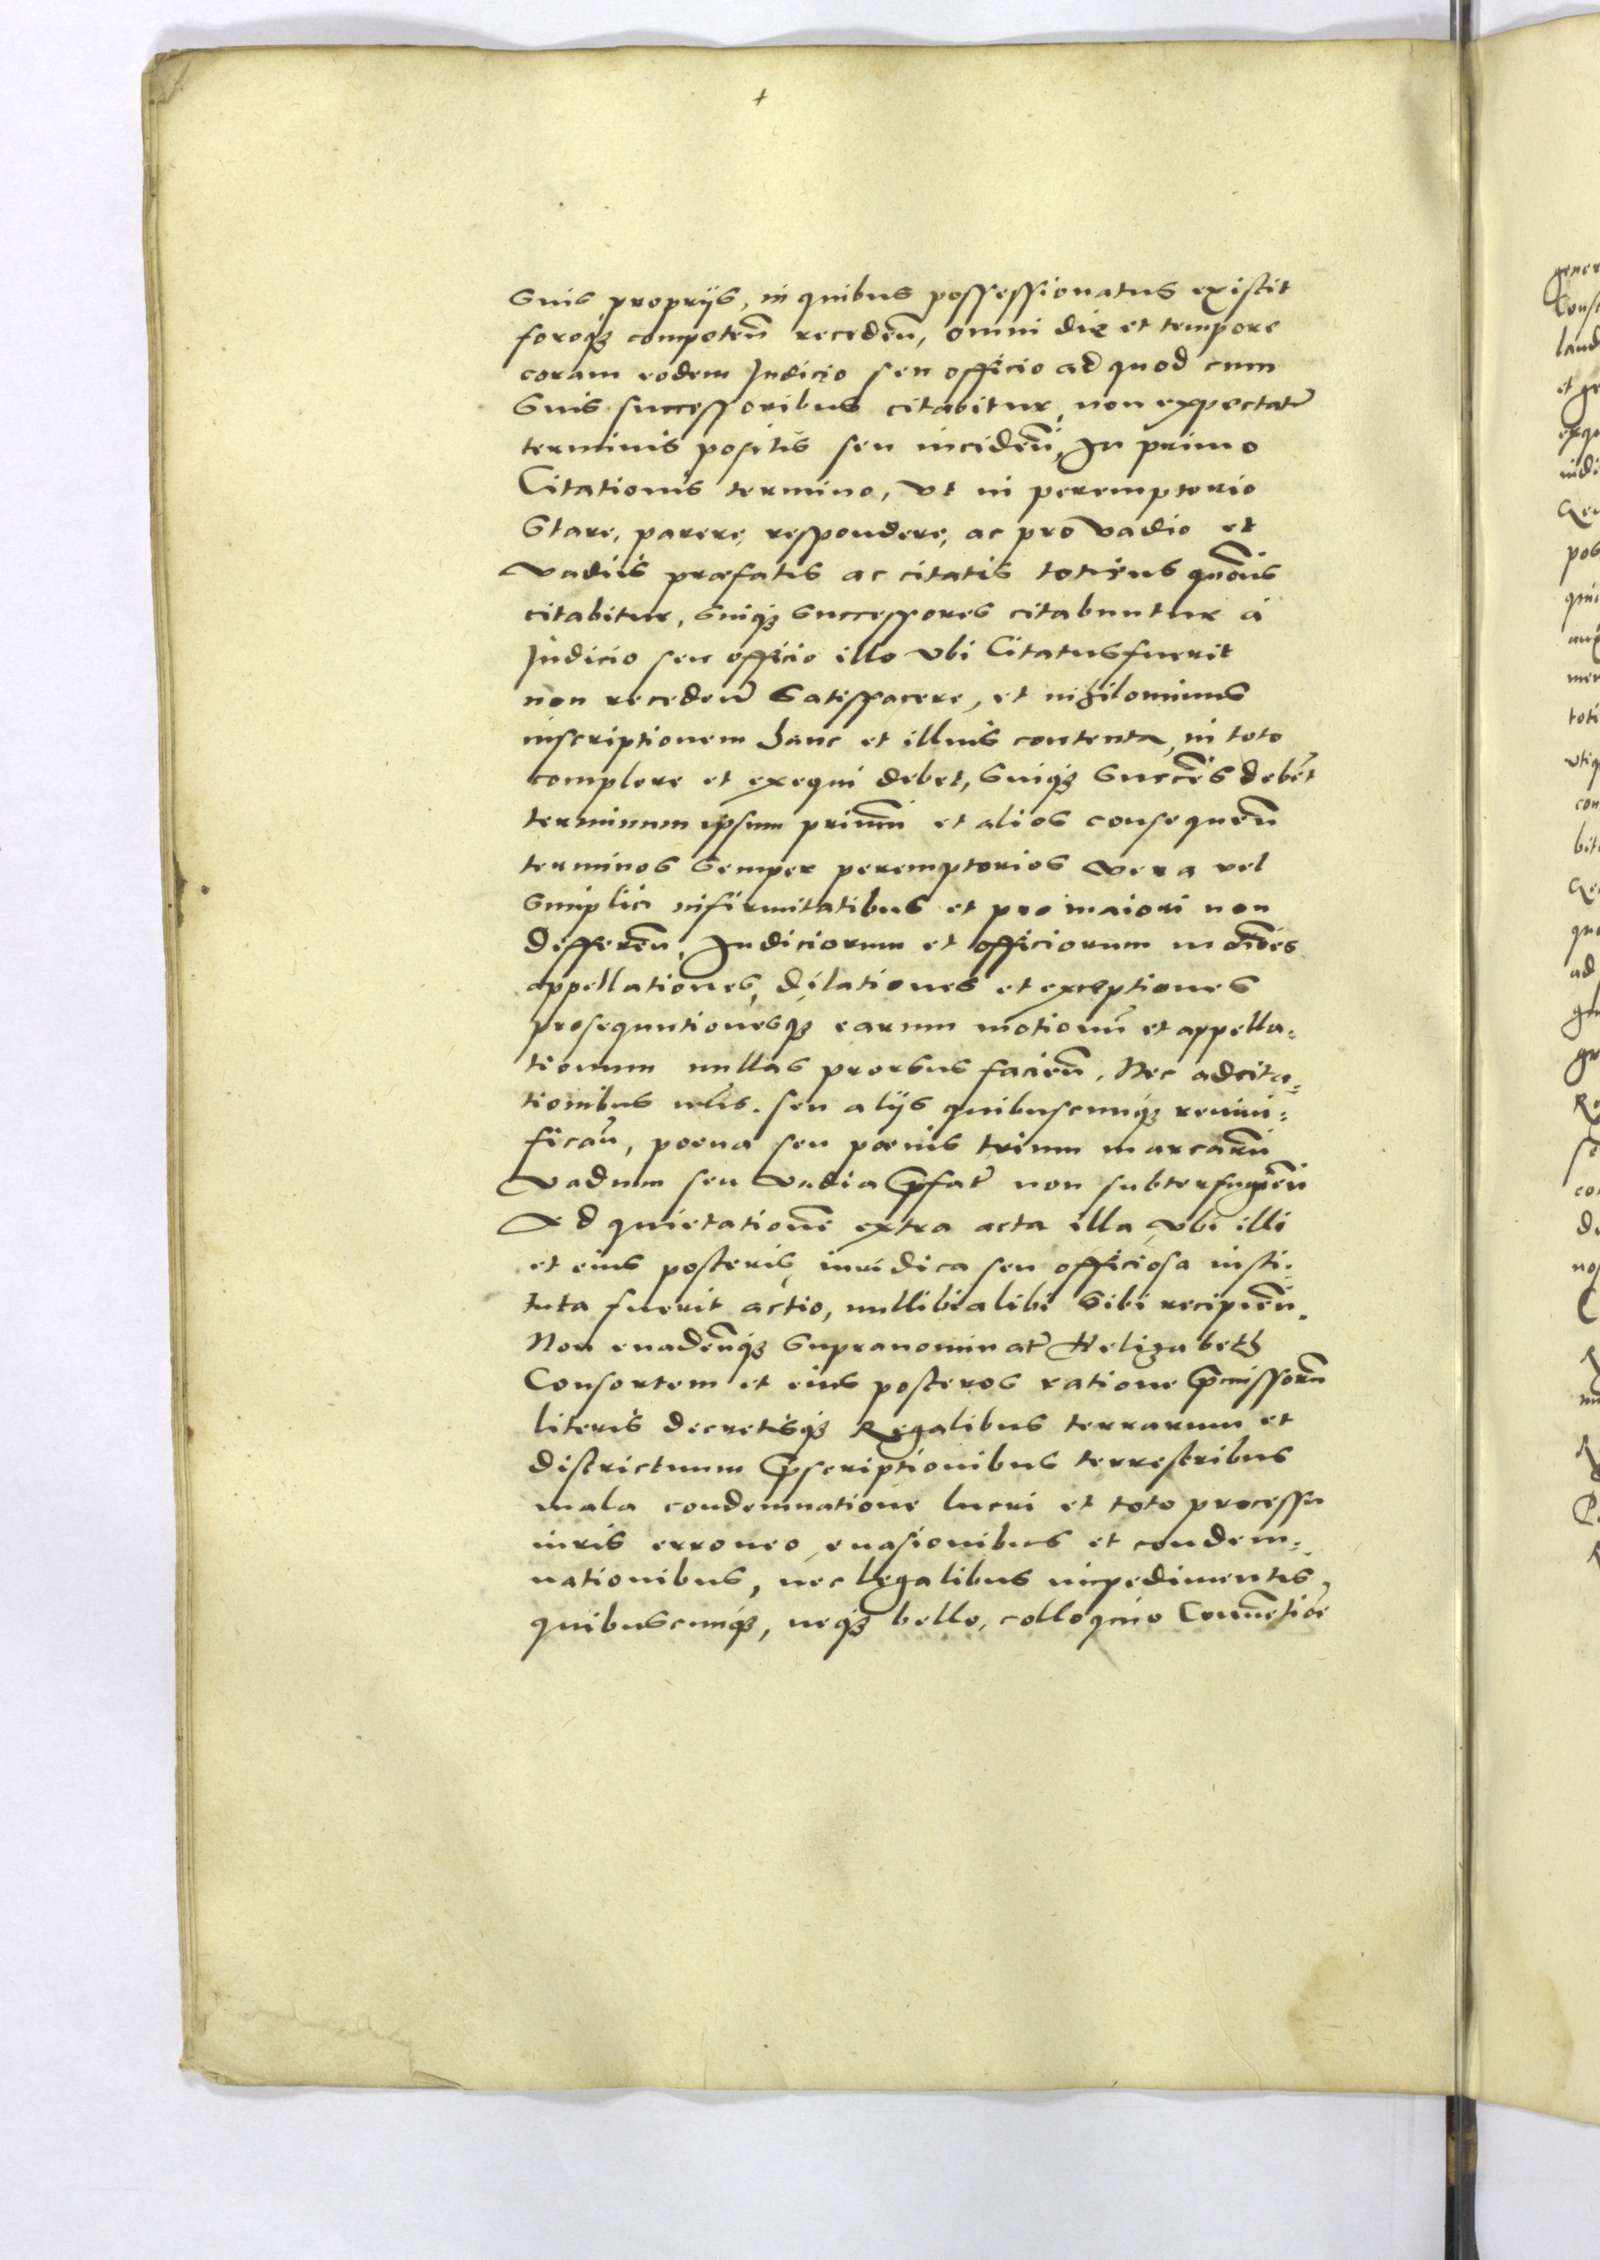 suis proprÿs, in quibus possessionatus existit
foroqȝ competen̄ receden̄, omni die et tempore
coram eodem Judicio seu officio ad quod cum
suis successoribus citabitur, non expectatꝭ
terminis positis seu inciden̄, In primo
Citationis termino, vt in peremptorio
stare, parere, respondere, ac pro vadio et
vadiis præfatis ac citatis totiens quotiens
citabitur, suiqȝ successores citabuntur à
Judicio seu officio illo vbi Citatus fuerit
non receden̄ satisfacere, et nihilominus
inscriptionem hanc et illius contenta, in toto
complere et exequi debet, suiqȝ succēs debēt
terminum ipsum primū et alios consequen̄
terminos semper peremptorios vera vel
simplici infirmitatibus et pro maiori non
differen̄, Judiciorum et officiorum m̄ ōes
appellationes, dilationes et exceptiones
prosequutionesqȝ earum motionū et appella=
tionum nullas prorsus facien̄. Nec adcita=
tionibus ullis. seu alÿs quibuscumqȝ
fican̄, poena seu poenis trium marcarū
vadium seu vadia p̄fatꝭ non subterfugien̄
Ad quietationē extra acta illa, vbi illi
et eius posteris, iuridica seu officiosa insti=
tuta fuerit actio, nullibi alibi sibi recipien̄.
Non euaden̄qȝ supranominatꝭ Helizabeth
Consortem et eius posteros ratione p̄missorū
literis decretisqȝ Regalibus terrarum et
districtuum p̄scriptionibus terrestribus
mala condemnatione lucri et toto processu
iuris erroneo, euasionibus et condem=
nationibus, nec legalibus impedimentis,
quibuscumqȝ, neqȝ bello, colloquio Conuētiōe